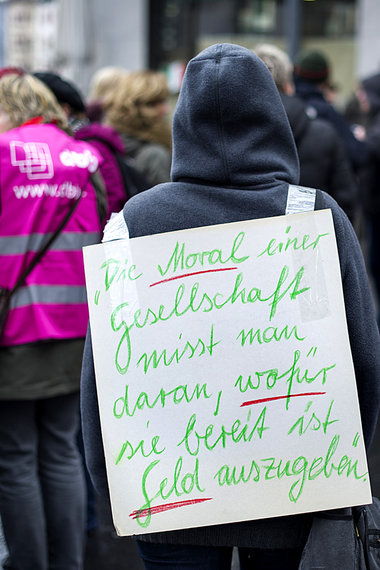 "Die Moral einer
Gesellschaft
misst man
daran, wofür
sie bereit ist
Geld auszugeben".
www.dbv